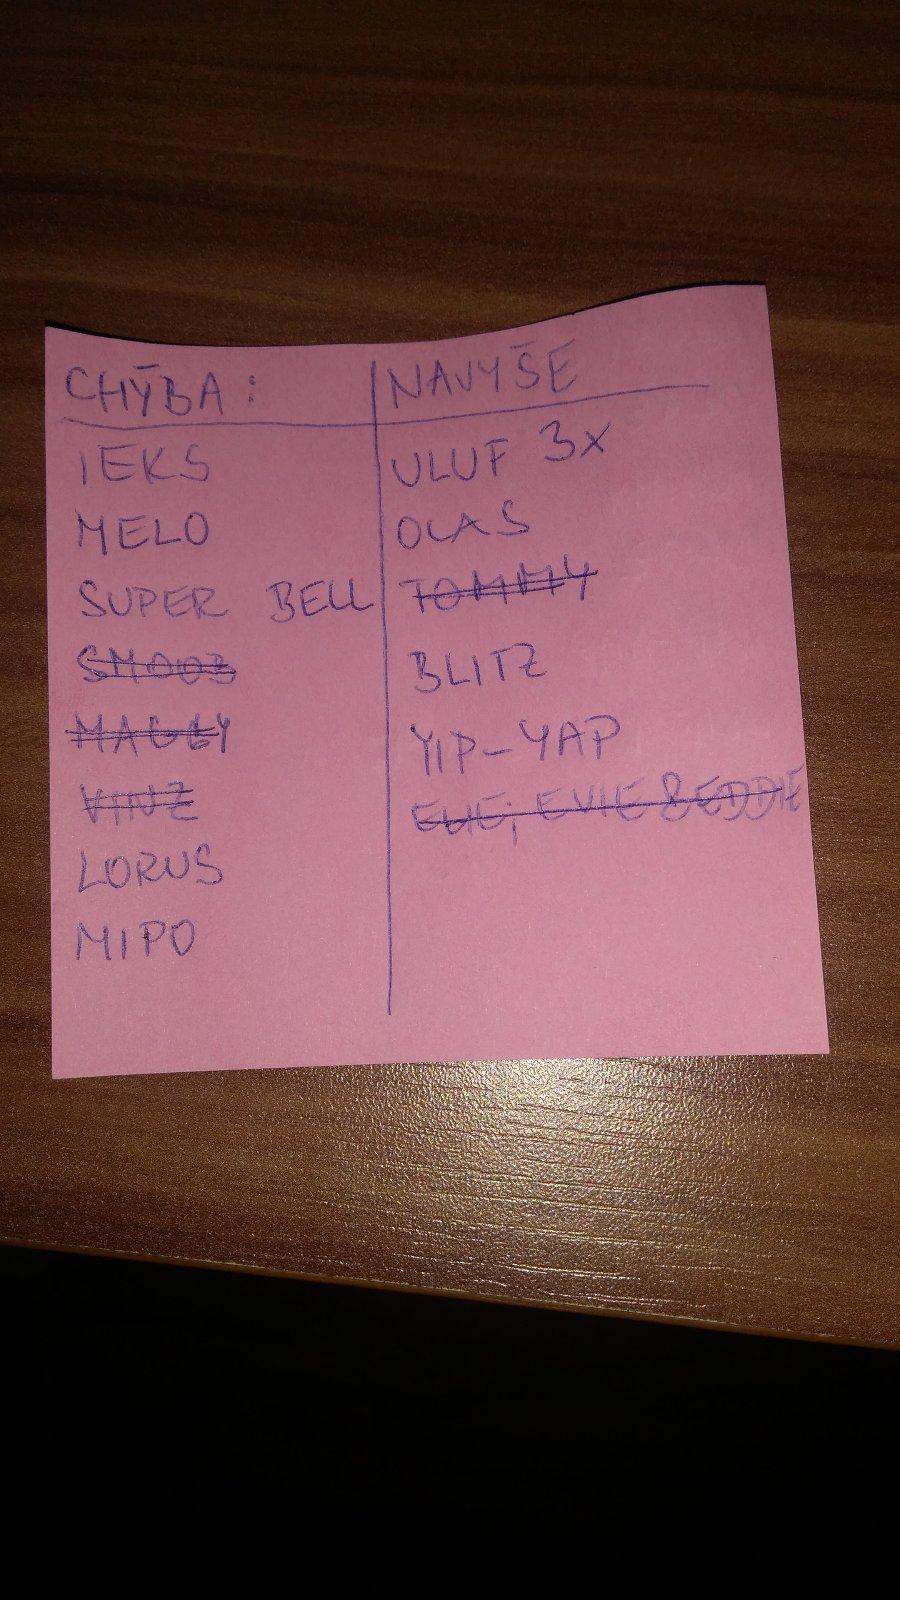 CHÝBA:
IEKS
MELO
SUPER BELL
SMOOB
MAGGY
VINZ
LORUS
MIPO
NAVYŠE
ULUF 3X
OLAS
TOMMY
BLITZ
YIP-YAP
ELIE, EVIE & EDDIE